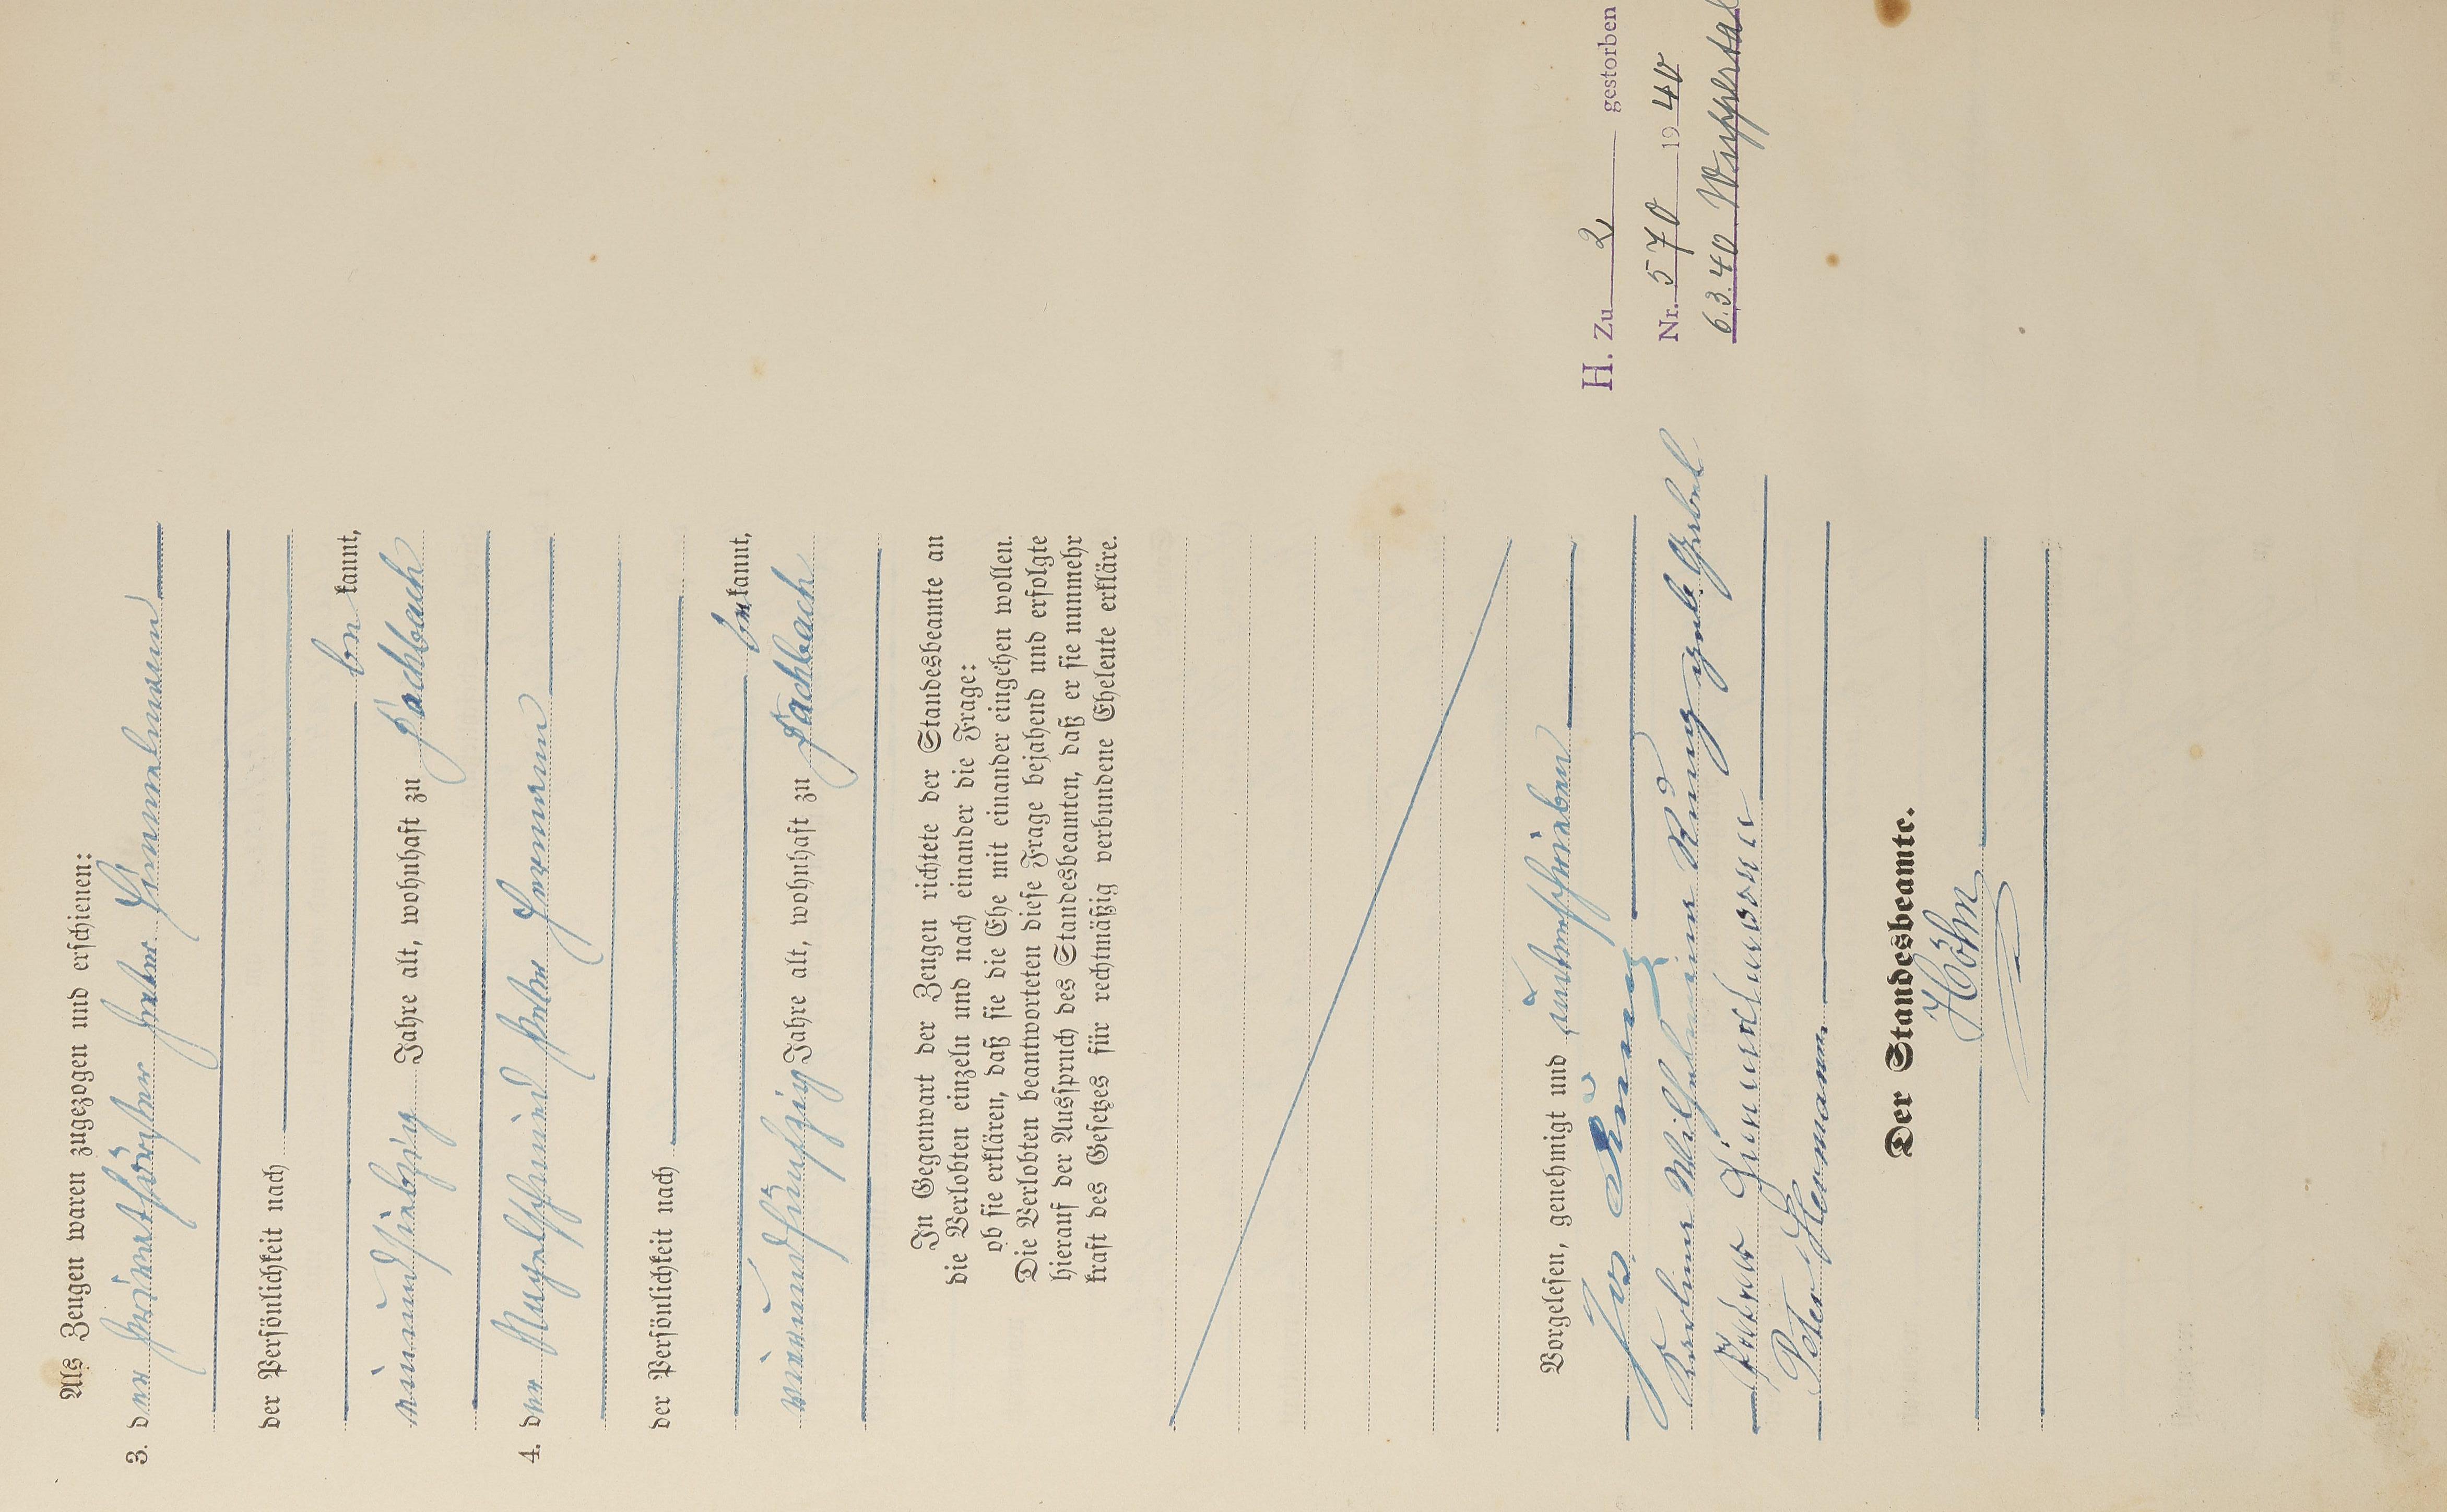 Als Zeugen waren zugezogen und erschienen:
3. der Peter Zimmermann
der Persönlichkeit nach
be kannt,
einundsiebzig Jahre alt, wohnhaft zu Fachbach
4. der Nagelschmied Peter Hermann
der Persönlichkeit nach
be kannt,
vierundfünfzig Jahre alt, wohnhaft zu Fachbach
In Gegenwart der Zeugen richtete der Standesbeamte an
die Verlobten einzeln und nach einander die Frage:
ob sie erklären, daß sie die Ehe mit einander eingehen wollen.
Die Verlobten beantworteten diese Frage bejahend und erfolgte
hierauf der Ausspruch des Standesbeamten, daß er sie nunmehr
kraft des Gesetzes für rechtmäßig verbundene Eheleute erkläre.
Vorgelesen, genehmigt und unterschrieben
Jos
Wilhelmine geb. Gebel
Zimmermann
Peter Hermann
Der Standesbeamte.
Höhn
H. Zu 2 gestorben
Nr. 570 1940
6.3.40 Wuppertal